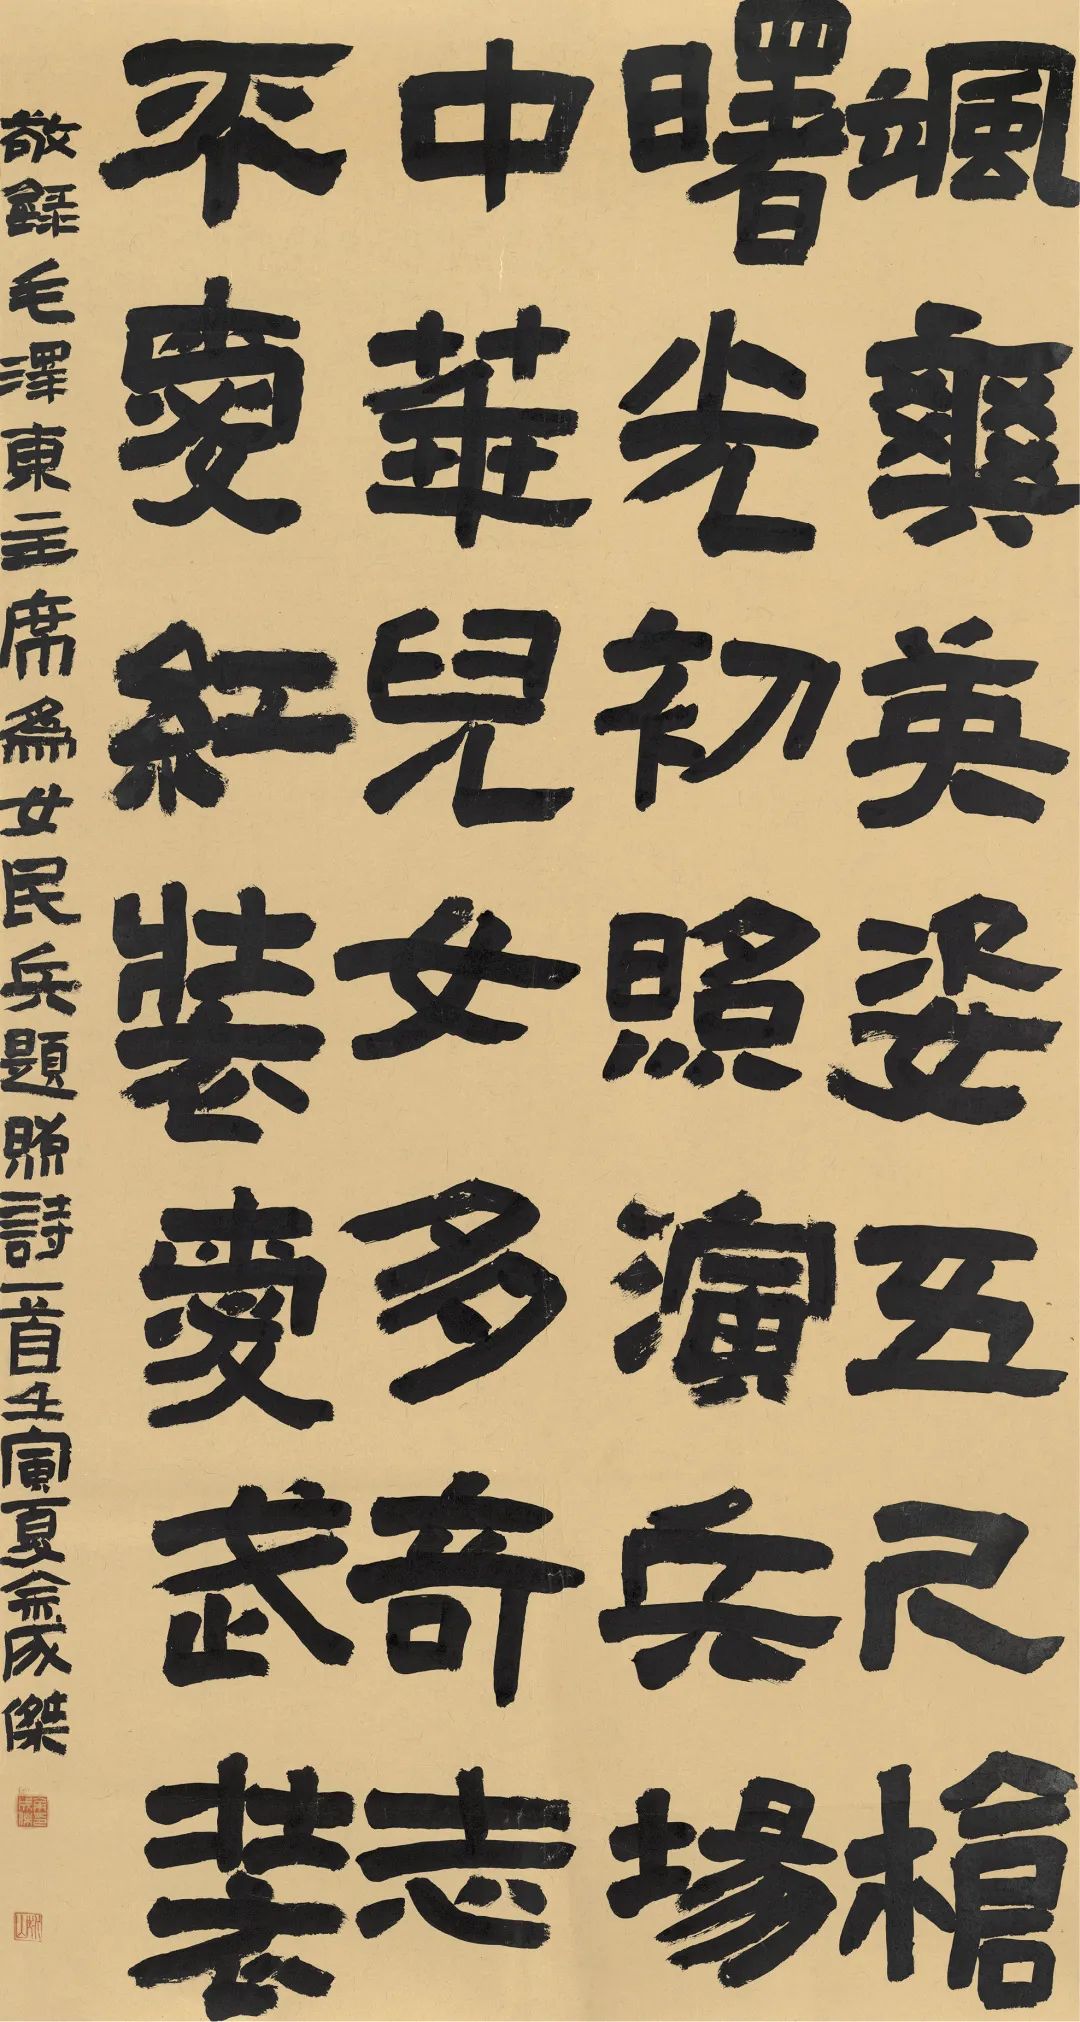 颯爽英姿五尺槍
曙光初照演兵場
中華兒女多奇志
不愛紅裝愛武裝
敬錄毛澤東主席為女民兵題照詩一首壬寅夏俞成傑